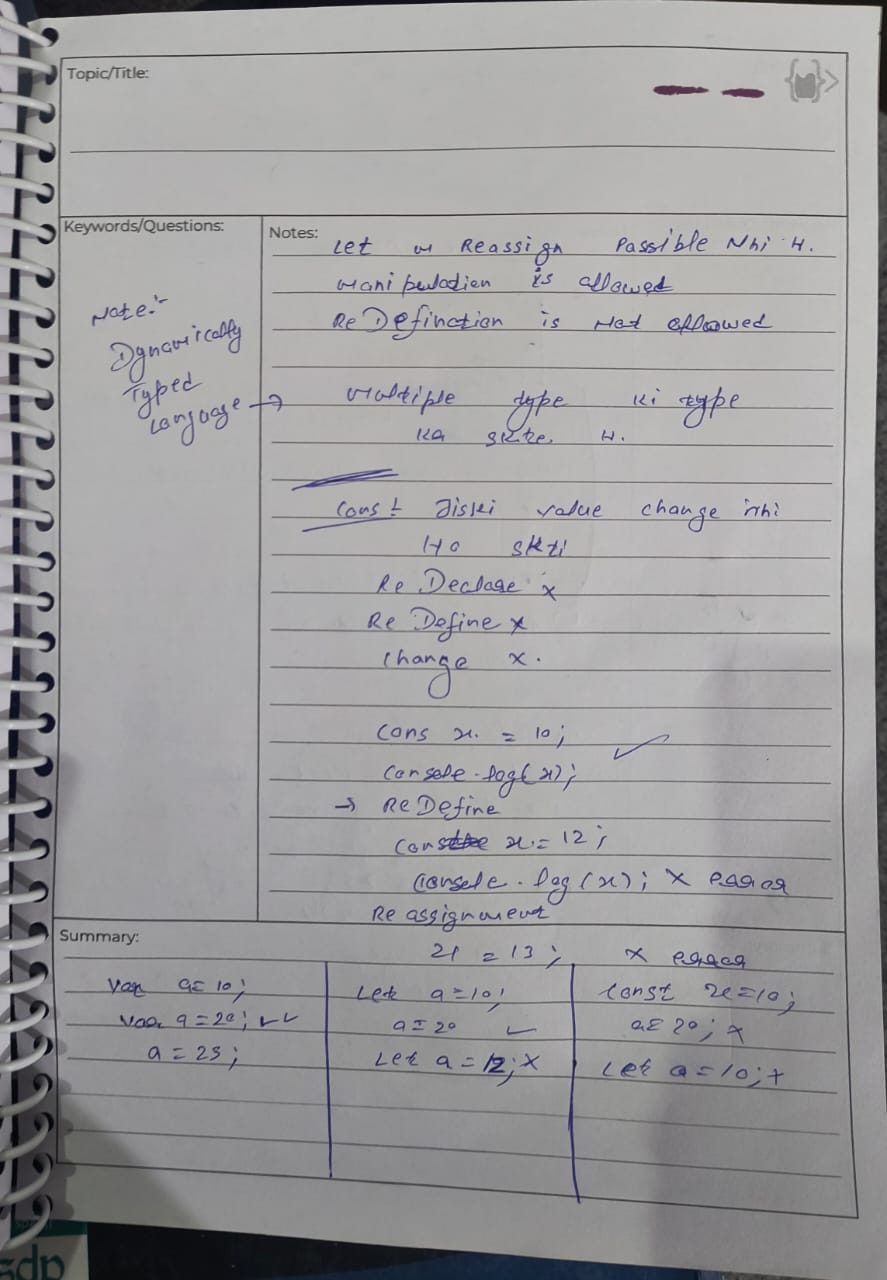 Topic/Title:
Keywords/Questions:
Note:-
Dynamically
Typed
Language →
Notes:
Let m Reassign Passible Nhi H.
Manipulation is allowed
ReDefinction is Not allowed
Multiple type ki type
ka skte. H.
Const Jiski value change nhi
Ho skti
Re Declare x
Re Define x
change x.
Cons x. = 10; ✓
Console.log(x);
→ ReDefine
Const x = 12;
Console.log(x); x error
Reassignment
x = 13; x error
Summary:
Var a= 10;
Var a = 20; ✓✓
a = 25;
Let a = 10;
a = 20 ✓
Let a = 12; x
Const x = 10;
a = 20; x
Let a = 10; x
sdp